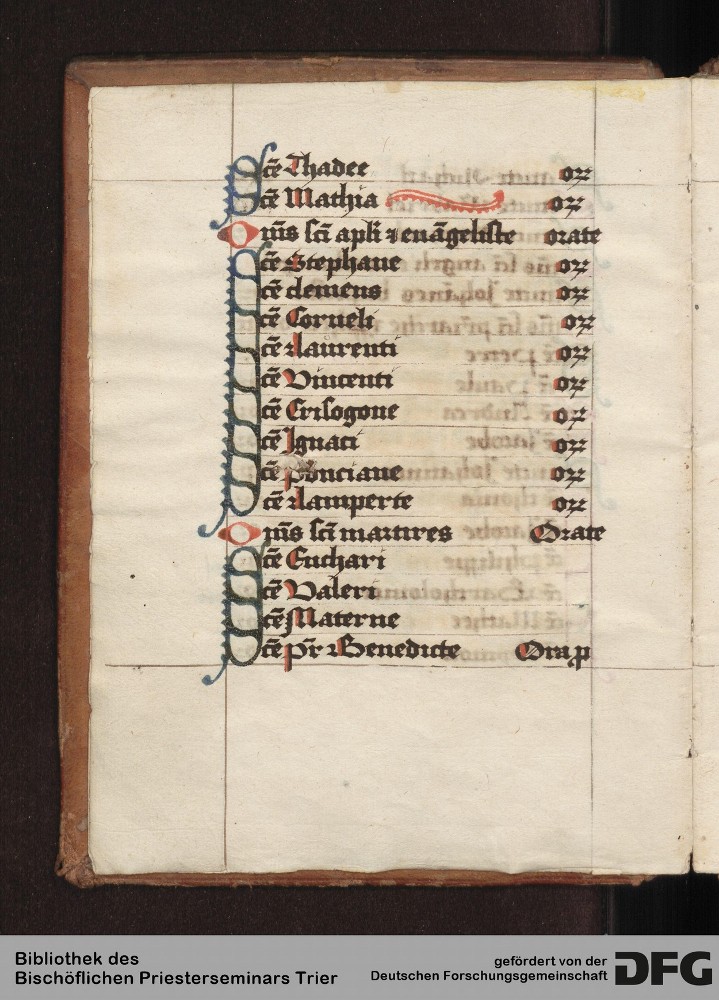 Scē Thadee oꝝ
Scē Mathia oꝝ
Om̄s sci apli ⁊ euāgeliste orate
Scē Stephane oꝝ
Scē clemens oꝝ
Scē Corneli oꝝ
Scē Laurenti oꝝ
Scē Vincenti oꝝ
Scē Crisogone oꝝ
Scē Ignaci oꝝ
Scē ponciane oꝝ
Scē Lamperte oꝝ
Om̄s sci martires Orate
Scē Euchari
Scē Valeri
Scē Materne
Scē pr̄ Benedicte Ora ꝓ
Bibliothek des
Bischöflichen Priesterseminars Trier
gefördert von der
Deutschen Forschungsgemeinschaft DFG